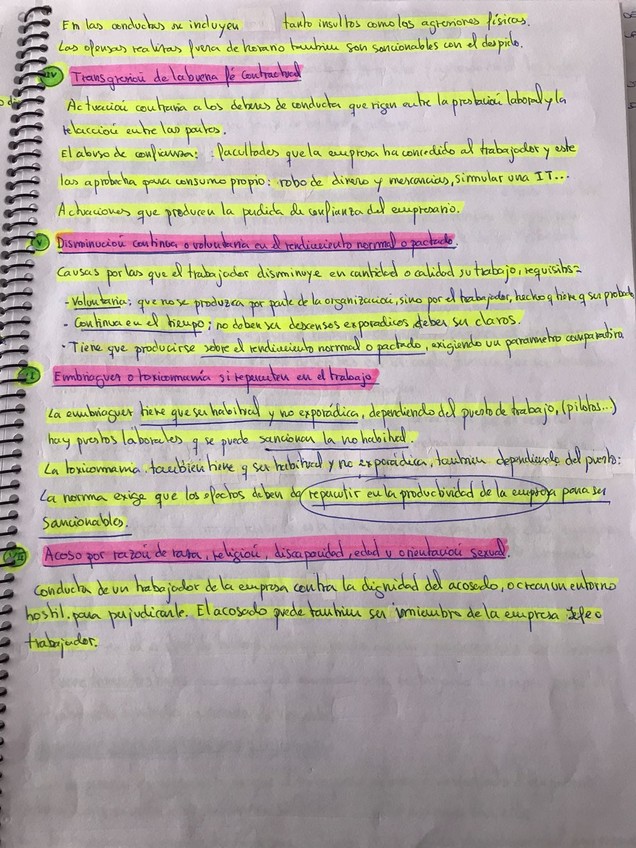 En las conductas se incluyen tanto insultos como las agresiones físicas.
Las ofensas realizadas fuera de horario tambien son sancionables con el despido.
IV Transgresión de la buena fé contractual
Actuación contraria a los deberes de conducta que rigen entre la prestación laboral y la
relacción entre las partes.
El abuso de confianza: facultades que la empresa ha concedido al trabajador y este
las aprobecha para consumo propio: robo de dinero y mercancias, simular una IT...
Actuaciones que producen la perdida de confianza del empresario.
V Disminución continua o voluntaria en el rendimiento normal o pactado.
Causas por las que el trabajador disminuye en cantidad o calidad su trabajo, requisitos:
- Voluntaria: que no se produzca por parte de la organización, sino por el trabajador, hecho q tiene q ser probado
- Continua en el tiempo; no deben ser descensos exporadicos deben ser claros.
· Tiene que producirse sobre el rendimiento normal o pactado, exigiendo un parametro comparativo.
Embriaguez o toxicomanía si repercuten en el trabajo
La embriaguez tiene que ser habitual y no exporádica, dependiendo del puesto de trabajo, (pilotos...)
hay puestos laborales q se puede sancionar la no habitual.
La toxicomania tambien tiene q ser habitual y no exporádica, tambien dependiendo del puesto:
La norma exige que los efectos deben de repercutir en la productividad de la empresa para ser
sancionables.
VII Acoso por razón de raza, religión, discapacidad, edad u orientación sexual.
Conducta de un trabajador de la empresa contra la dignidad del acosado, o crear un entorno
hostil para perjudicarle. El acosado puede tambien ser miembro de la empresa jefe o
trabajador.